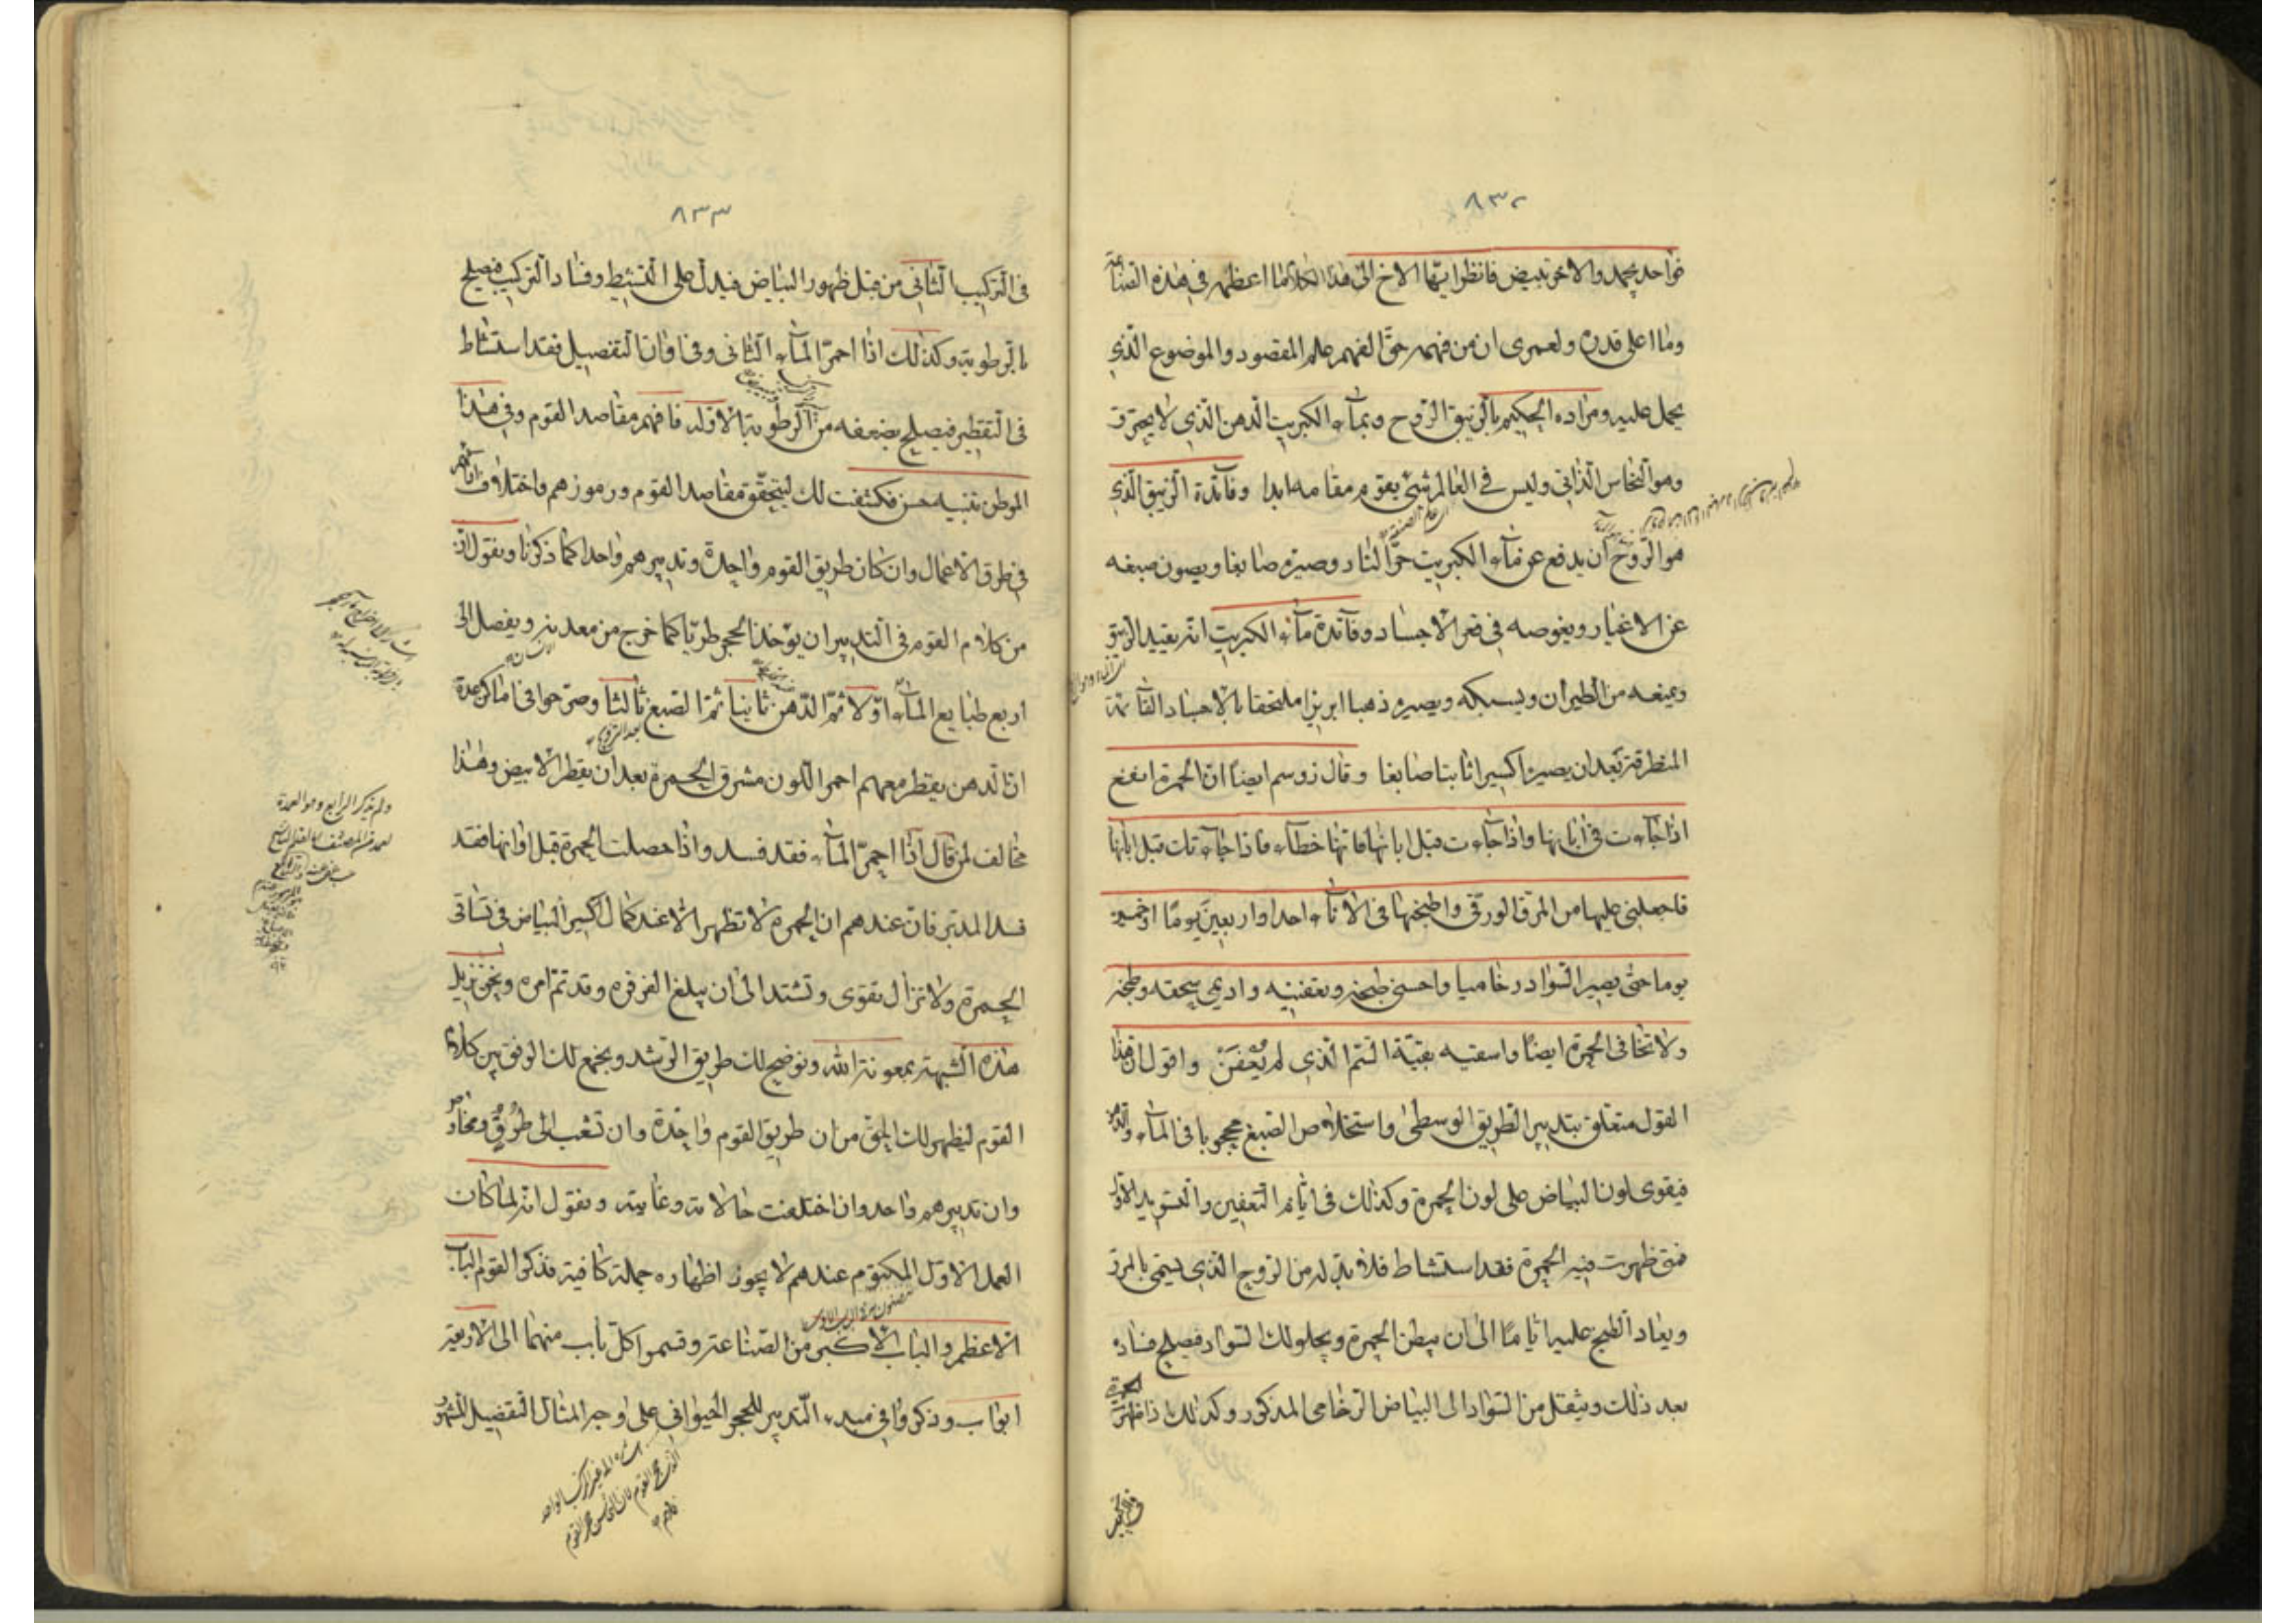 ٨٣٢
فواحد يجمد والاخر تبيض فانظر ايها الاخ الى هذا الكلام ما اعظمه فى هذه الصناعة
وما اعلى قدره ولعمرى ان من فهمه حق الفهم علم المقصود والموضوع الذى
يحمل عليه ومراده الحكيم بالزيبق الروح وبماء الكبريت الدهن الذى لا يحترق
وهو النحاس الذاتى وليس فى العالم شئ يقوم مقامه ابدا وفائدة الزيبق الذى
هو الروح ان يدفع عن ماء الكبريت حر النار وصيره صابغا ويصون صبغه
عن الاغيار ويغوصه فى قعر الاجساد وفائدة ماء الكبريت انه يقيد الزيبق
ويمنعه من الطيران ويسبكه ويصيره ذهبا ابريزا ملتحقا بالاجساد القائمة
المنطرقة بعد ان يصير اكسيرا ثابتا صابغا وقال زوسم ايضا ان الحمرة انفع
اذا جاءت فى ابانها واذا جاءت قبل ابانها فانها خطاء فاذا جاءتك قبل ابانها
فاجعلى عليها من المرق الورقى واطبخيها فى الاناء احدا واربعين يوما او خمسين
يوما حتى يصير السواد رخاميا واحسنى طبخه وتعفينه واديمى سحقه وطبخه
ولا تخافى الحمرة ايضا واسقيه بقية السم الذى لم يعفن واقول ان هذا
القول متعلق بتدبير الطريق الوسطى واستخلاص الصبغ محجوبا فى الماء والدهن
فيقوى لون البياض على لون الحمرة وكذلك فى ايام التعفين والتسويد الاول
فمتى ظهرت فيه الحمرة فقد استشاط فلا بد له من الروح الذى يسمى بالمرق
ويعاد الطبخ عليه اياما الى ان يبطن الحمرة ويحلو لك السواد فيصلح فساده
بعد ذلك وينتقل من السواد الى البياض الرخامى المذكور وكذلك اذا ظهرت الحمرة
٨٣٣
فى التركيب الثانى من قبل ظهور البياض فيدل على التشيط وفساد التركيب فيصلح
بالرطوبة وكذلك اذا احمر الماء الثانى وفى اوان التفصيل فقد استشاط
فى التقطير فيصلح بضعفه من الرطوبة الاولى فافهم مقاصد القوم وفى هذا
الموطن تنبيه حسن فكشفت لك ليتحقق مقاصد القوم ورموزهم واختلاف
فى طرق الاعمال وان كان طريق القوم واحدة وتدبيرهم واحدا كما ذكرنا ونقول ان
من كلام القوم فى التدبير ان يؤخذ الحجر طريا كما خرج من معدنه ويفصل الى
اربع طبايع الماء اولا ثم الدهن ثانيا ثم الصبغ ثالثا وصرحوا فى اماكن عدة
ان الدهن يقطر معهم احمر اللون مشرق الحمرة بعد ان يقطر الابيض وهذا
مخالف لمن قال اذا احمر الماء فقد فسد واذا حصلت الحمرة قبل اوانها فقد
فسد المدبر فان عندهم ان الحمرة لا تظهر الا عند كمال اكسير البياض فى تساقى
الحمرة ولا تزال تقوى وتشتد الى ان يبلغ الفرفره وقد تم امره ونحن نزيل
هذه الشبهة بمعونة الله ونوضح لك طريق الرشد ونجمع لك الوفق بين كلام
القوم ليظهر لك الحق من ان طريق القوم واحدة وان تشعب الى طرق
وان تدبيرهم واحد وان اختلفت حالاته وغايته ونقول انه لما كان
العمل الاول المكتوم عندهم لا يجوز اظهاره جملة كافية فذكر القوم الباب
الاعظم والباب الاكبر من الصناعة وقسموا كل باب منهما الى الاربعة
ابواب وذكروا فى مبدء التدبير للحجر الحيوانى على اوجه المثال التفصيل المشهور
ولم يذكر الرابع وهو العمدة